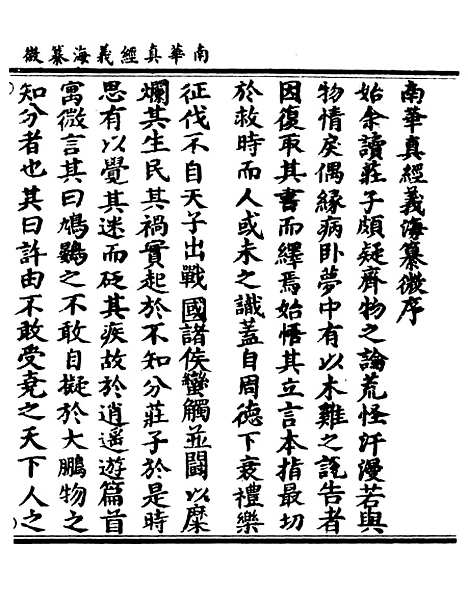 南華真經義海纂微
南華真經義海纂微序
始余讀莊子頗疑齊物之論荒怪汗漫若與
物情戾偶緣病卧夢中有以木雞之說告者
因復取其書而繹焉始悟其立言本指最切
於救時而人或未之識蓋自周德下衰禮樂
征伐不自天子出戰國諸侯蠻觸並鬪以糜
爛其生民其禍實起於不知分莊子於是時
思有以覺其迷而砭其疾故於逍遥遊篇首
寓微言其曰鳩鷃之不敢自擬於大鵬物之
知分者也其曰許由不敢受堯之天下人之